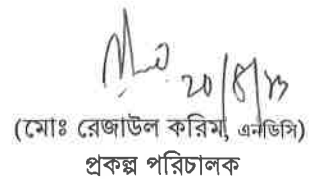 20/8/23
(মোঃ রেজাউল করিম, এনডিসি)
প্রকল্প পরিচালক